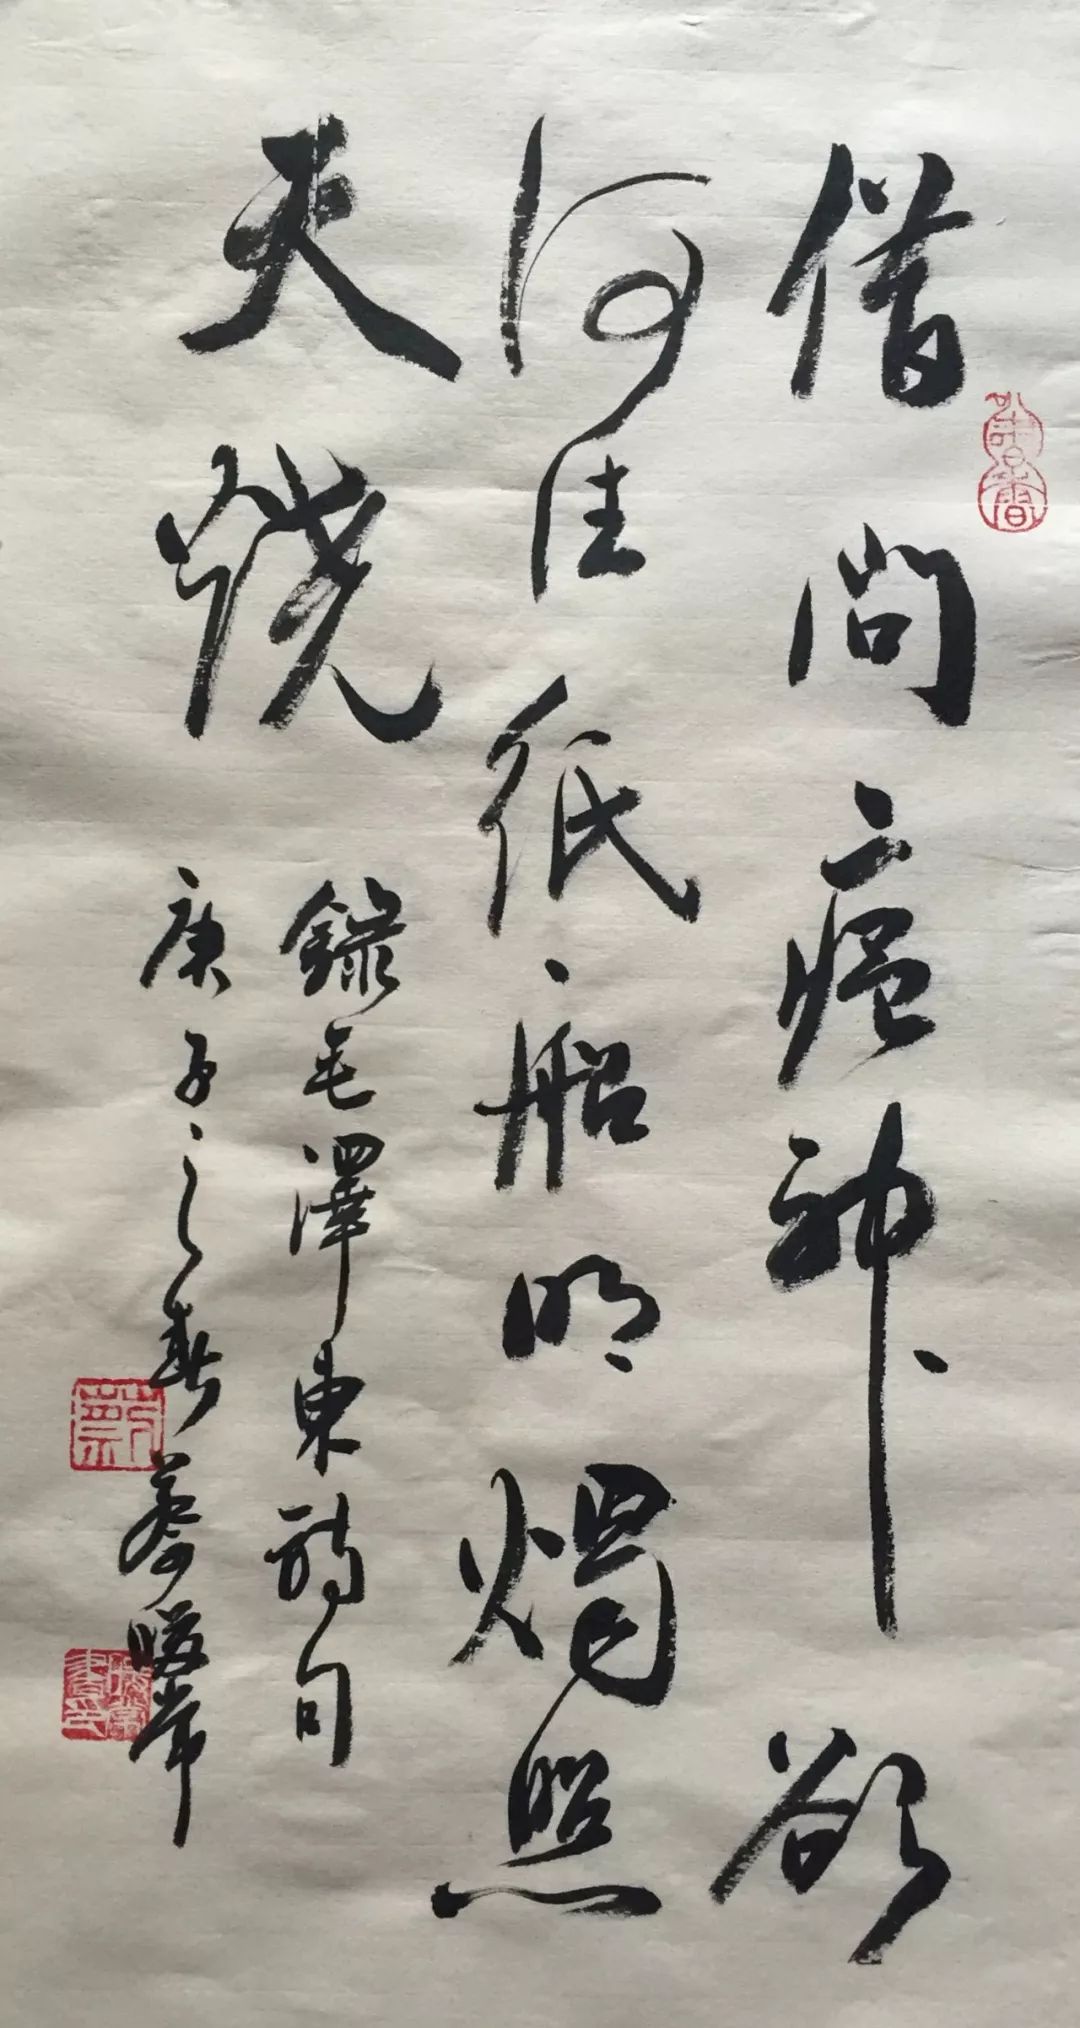 借問瘟神欲
何往紙船明燭照
天燒
錄毛澤東詩句
庚子之春蔡
蔡